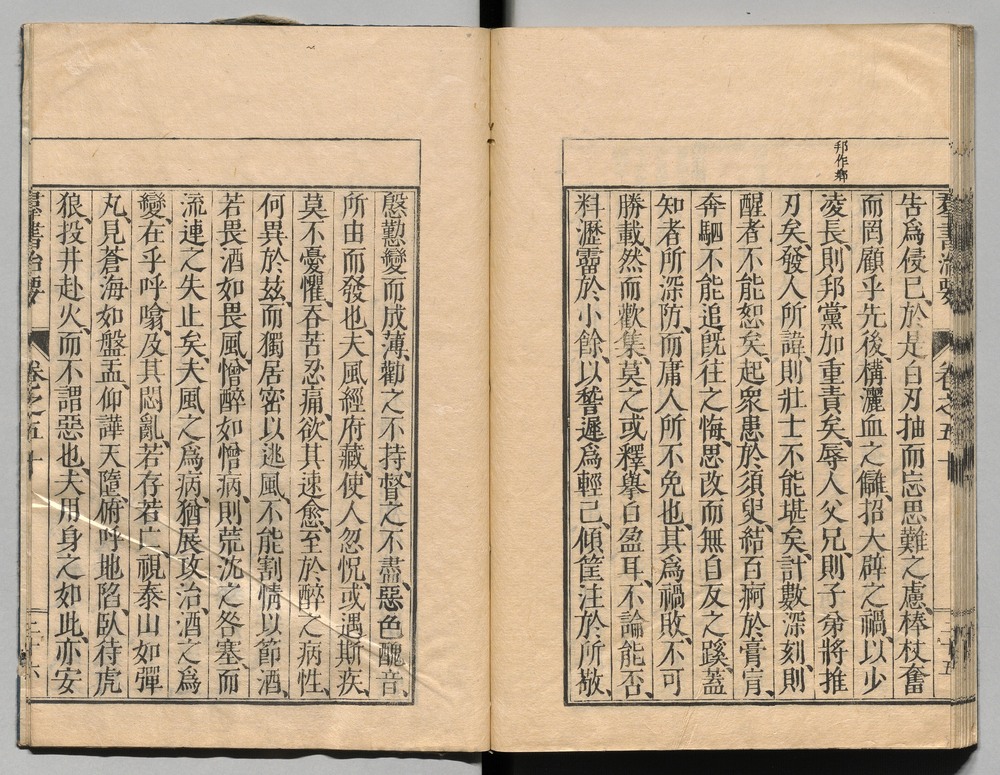 邦作鄉
告為侵己、於是白刃抽而忘思難之慮、棒杖奮
而罔顧乎先後、構灑血之讎、招大辟之禍、以少
凌長、則邦黨加重責矣、辱人父兄、則子弟將推
刃矣、發人所諱、則壯士不能堪矣、計數深刻、則
醒者不能恕矣、起衆患於須臾、結百痾於膏肓、
奔駟不能追既往之悔、思改而無自反之蹊、蓋
知者所深防、而庸人所不免也、其為禍敗、不可
勝載、然而歡集、莫之或釋、舉白盈耳、不論能否、
料瀝霤於小餘、以稽遲為輕己、傾筐注於所敬、
慇懃變而成薄、勸之不持、督之不盡、惡色醜音、
所由而發也、夫風經府藏、使人忽怳、或遇斯疾、
莫不憂懼、吞苦忍痛、欲其速愈、至於醉之病性、
何異於茲、而獨居密以逃風、不能割情以節酒、
若畏酒如畏風、憎醉如憎病、則荒沈之咎塞、而
流連之失止矣、夫風之為病、猶展攻治、酒之為
變、在乎呼噏、及其悶亂、若存若亡、視泰山如彈
丸、見蒼海如盤盂、仰讙天墮、俯呼地陷、臥待虎
狼、投井赴火、而不謂惡也、夫用身之如此、亦安
群書治要 卷之五十